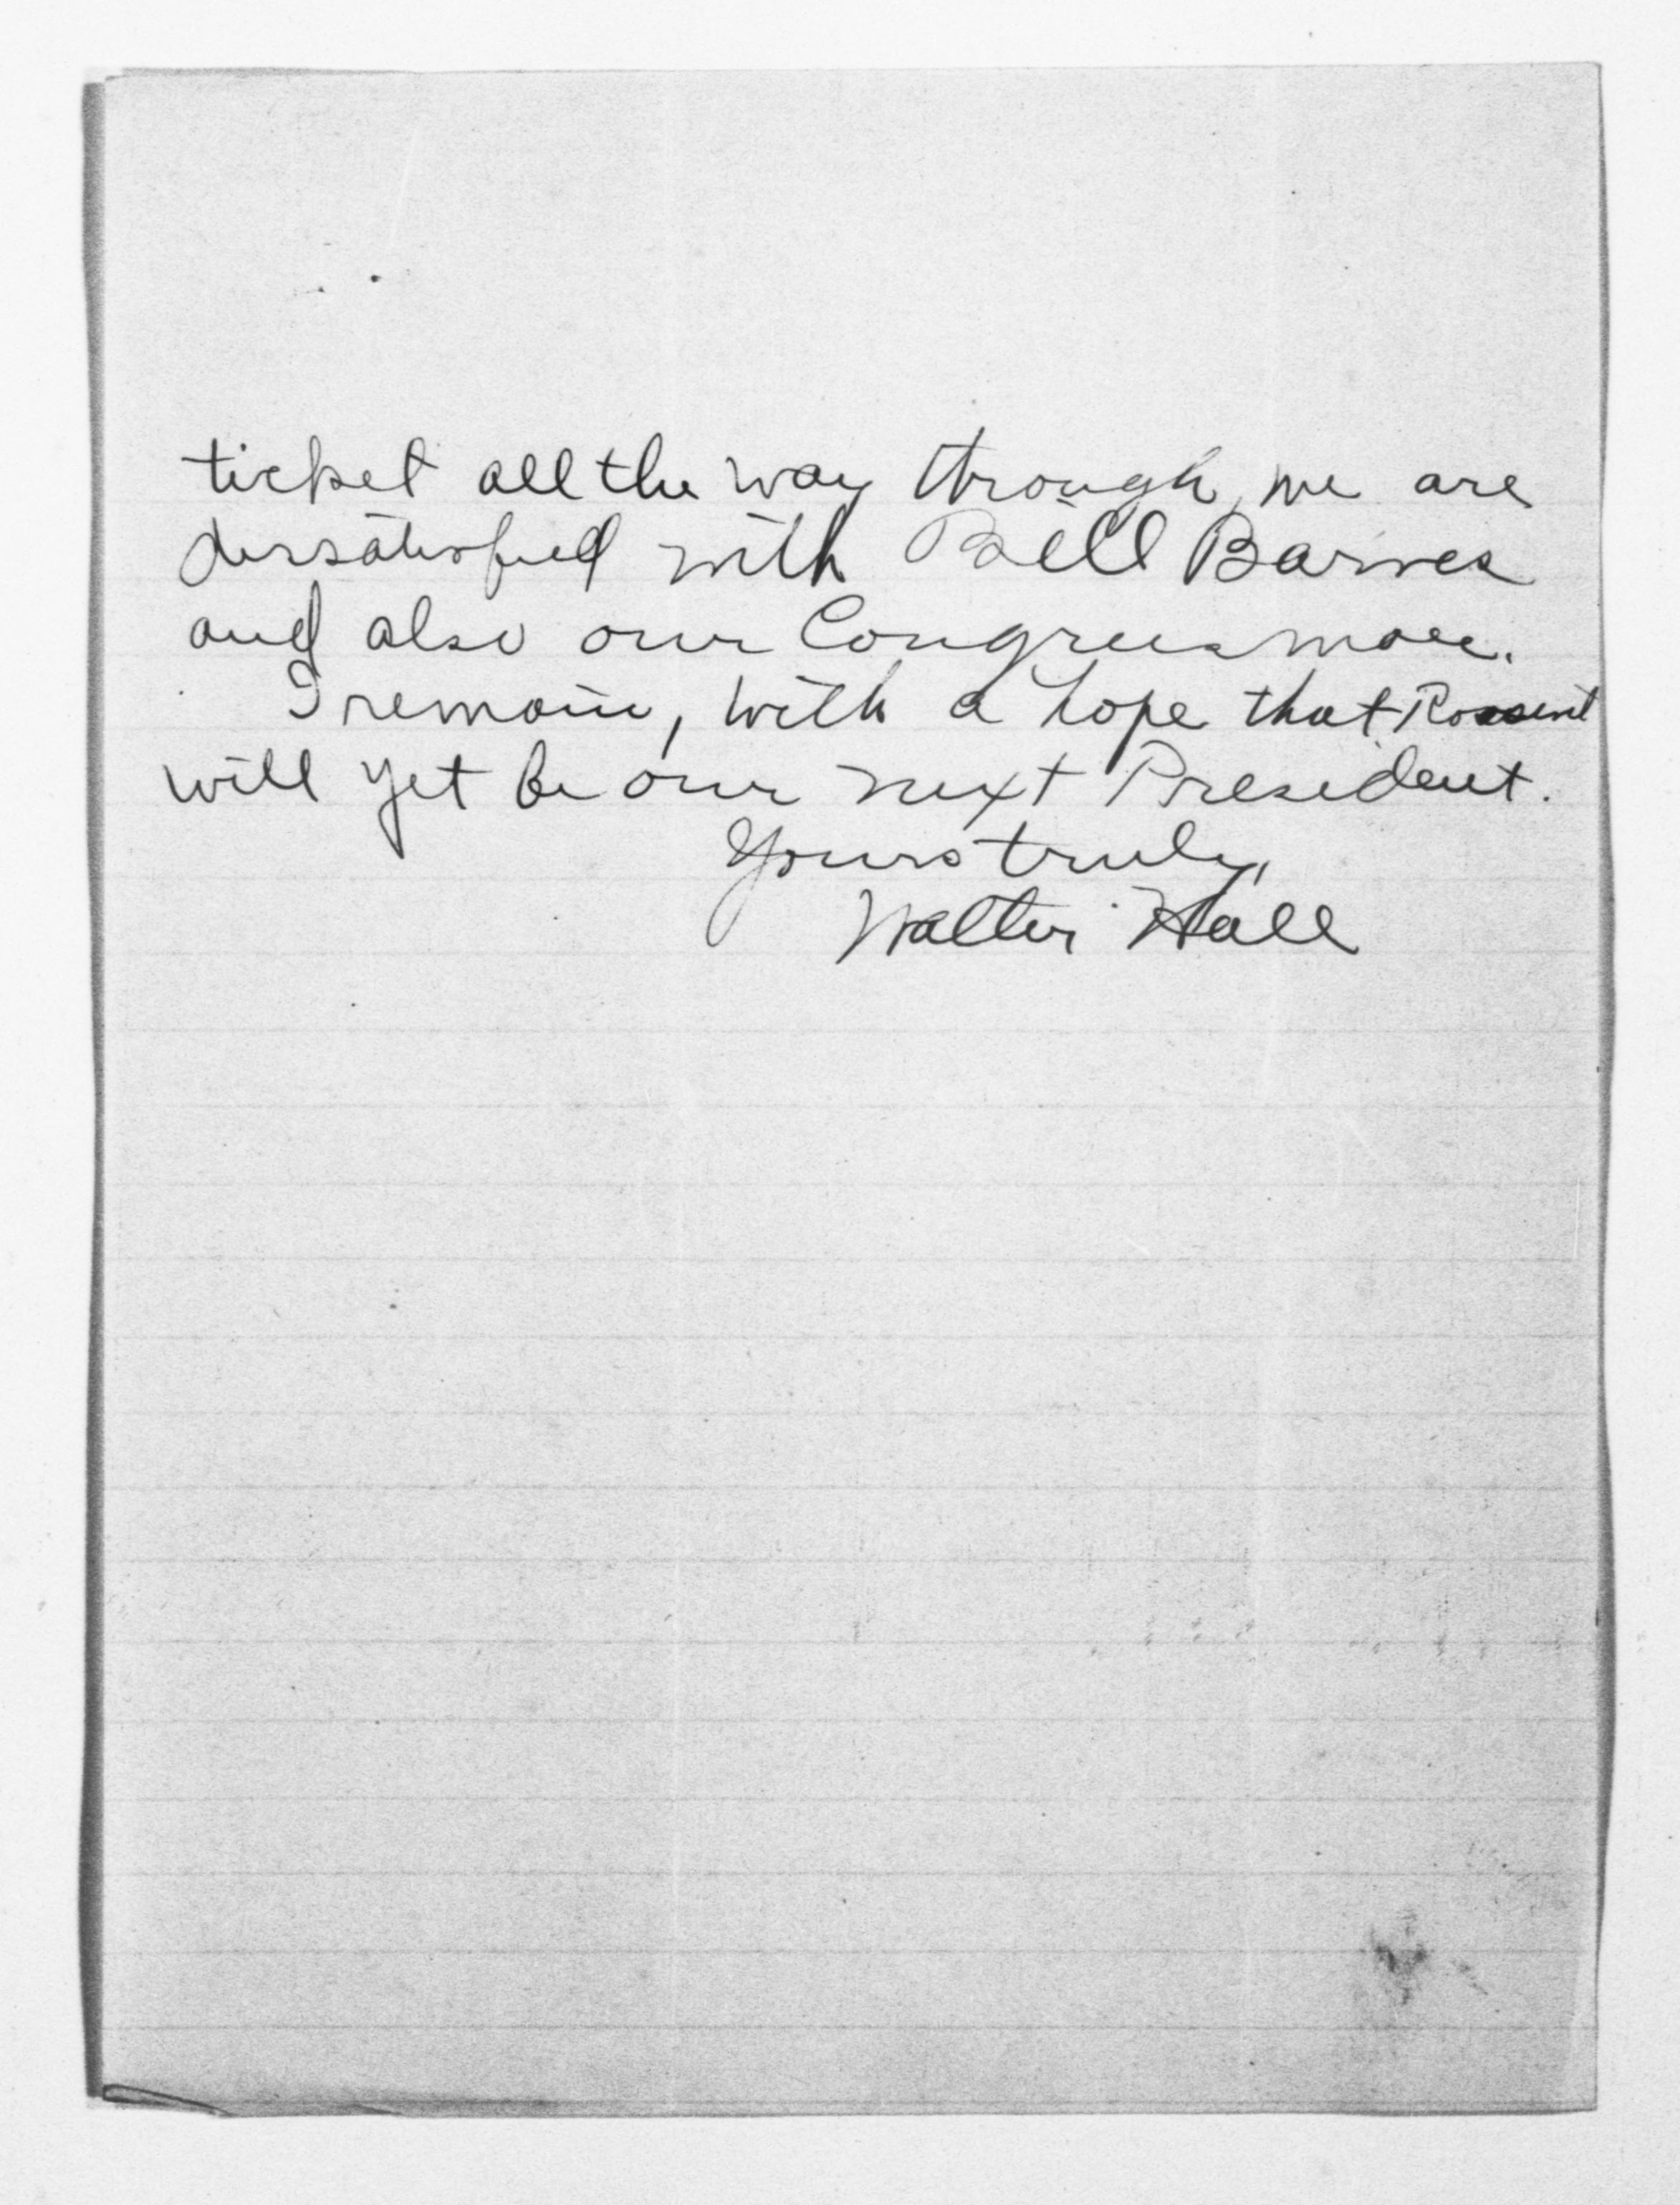 ticket all the way through, we are
dissatisfied with Bill Barnes
and also our Congressman.
I remain, with a hope that
will yet be our next President.
Yours truly,
Walter Hall